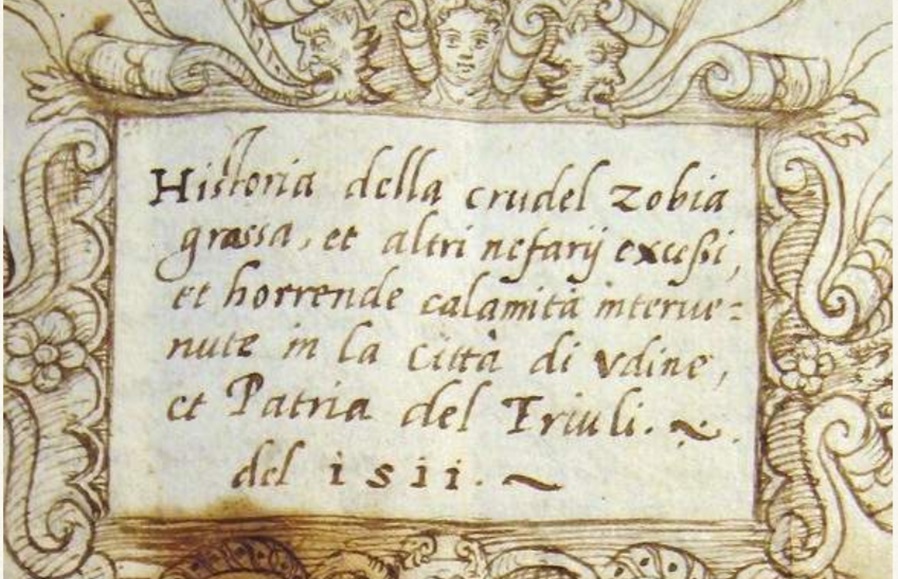 Historia della crudel Zobia
grassa, et altri nefarij excessi,
et horrende calamità interue=
nute in la città di Vdine,
et Patria del Friuli. ~.
del 1511. ~